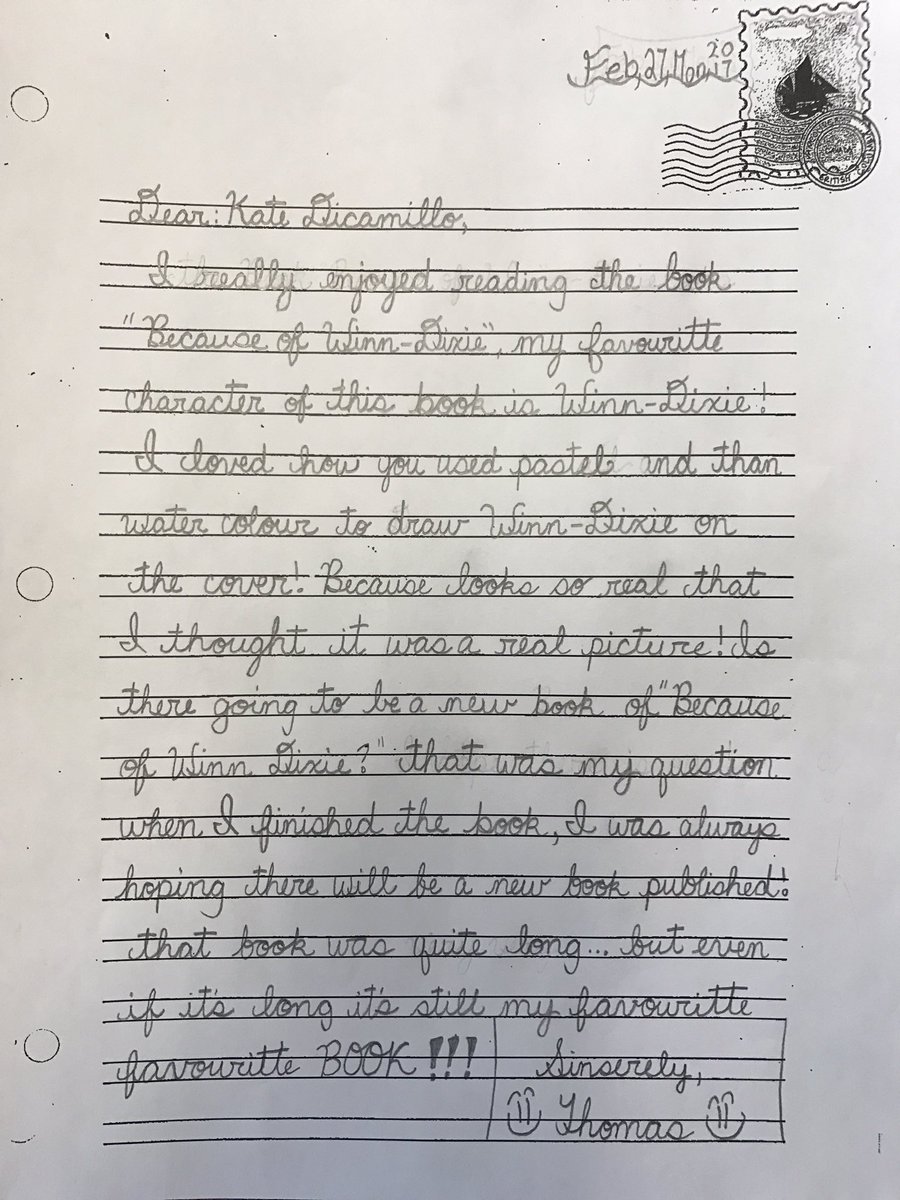 Feb, 27, Mon, 2017
Dear: Kate Dicamillo,
I really enjoyed reading the book
"Because of Winn-Dixie", my favouritte
character of this book is Winn-Dixie!
I loved how you used pastels and than
water colour to draw Winn-Dixie on
the cover! Because looks so real that
I thought it was a real picture! Is
there going to be a new book of "Because
of Winn Dixie?" that was my question
when I finished the book, I was always
hoping there will be a new book published!
that book was quite long... but even
if it's long it's still my favouritte
favouritte BOOK !!!
Sinserely,
Thomas